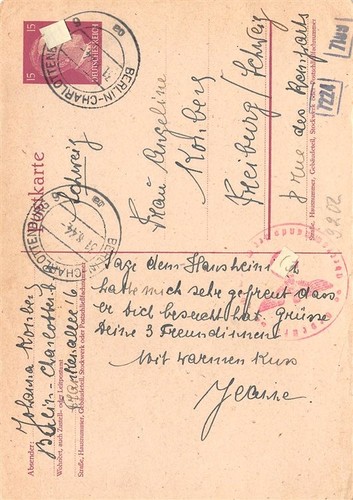 15 15
DEUTSCHES REICH
BERLIN-CHARLOTTENBURG
Postkarte
BERLIN-CHARLOTTENBURG
31.8.44
Frau Angeline
Konberg
Freiburg / Schweiz
8 rue des Remparts
Schweiz
Straße, Hausnummer, Gebäudeteil, Stockwerk oder Postschließfachnummer
7224
7188
9202
Absender: Johanna Konberg
Berlin-Charlottenburg
Wohnort, auch Zustell- oder Leitpostamt
Straße, Hausnummer, Gebäudeteil, Stockwerk oder Postschließfachnummer
Sage dem Hansheini
hatte mich sehr gefreut dass
er dich besucht hat. Grüsse
Deine 3 Freundinnen
Mit warmen Kuss